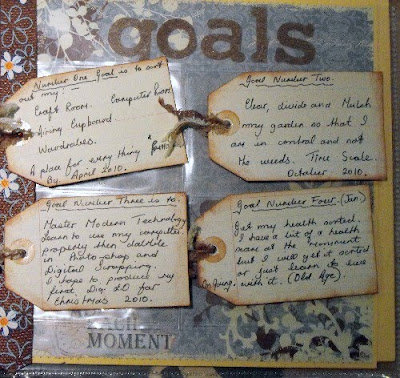 goals
Number One Goal is to sort
out my:
Craft Room. Computer Room
Airing Cupboard.
Wardrobes.
A place for every thing
By April 2010.
Goal Number Two.
Clear, divide and Mulch
my garden so that I
am in control and not
the weeds. Time Scale
October 2010.
Goal Number Three is to
Master Modern Technology
Learn to use my computer
properly then dabble
in Photoshop and
Digital Scrapping.
I hope to produce my
first Digi LO for
Christmas 2010.
Goal Number Four.
Get my health sorted.
I have a bit of a health
scare at the moment
but I will get it sorted
or just learn to live
with it. (Old Age).
EACH
MOMENT